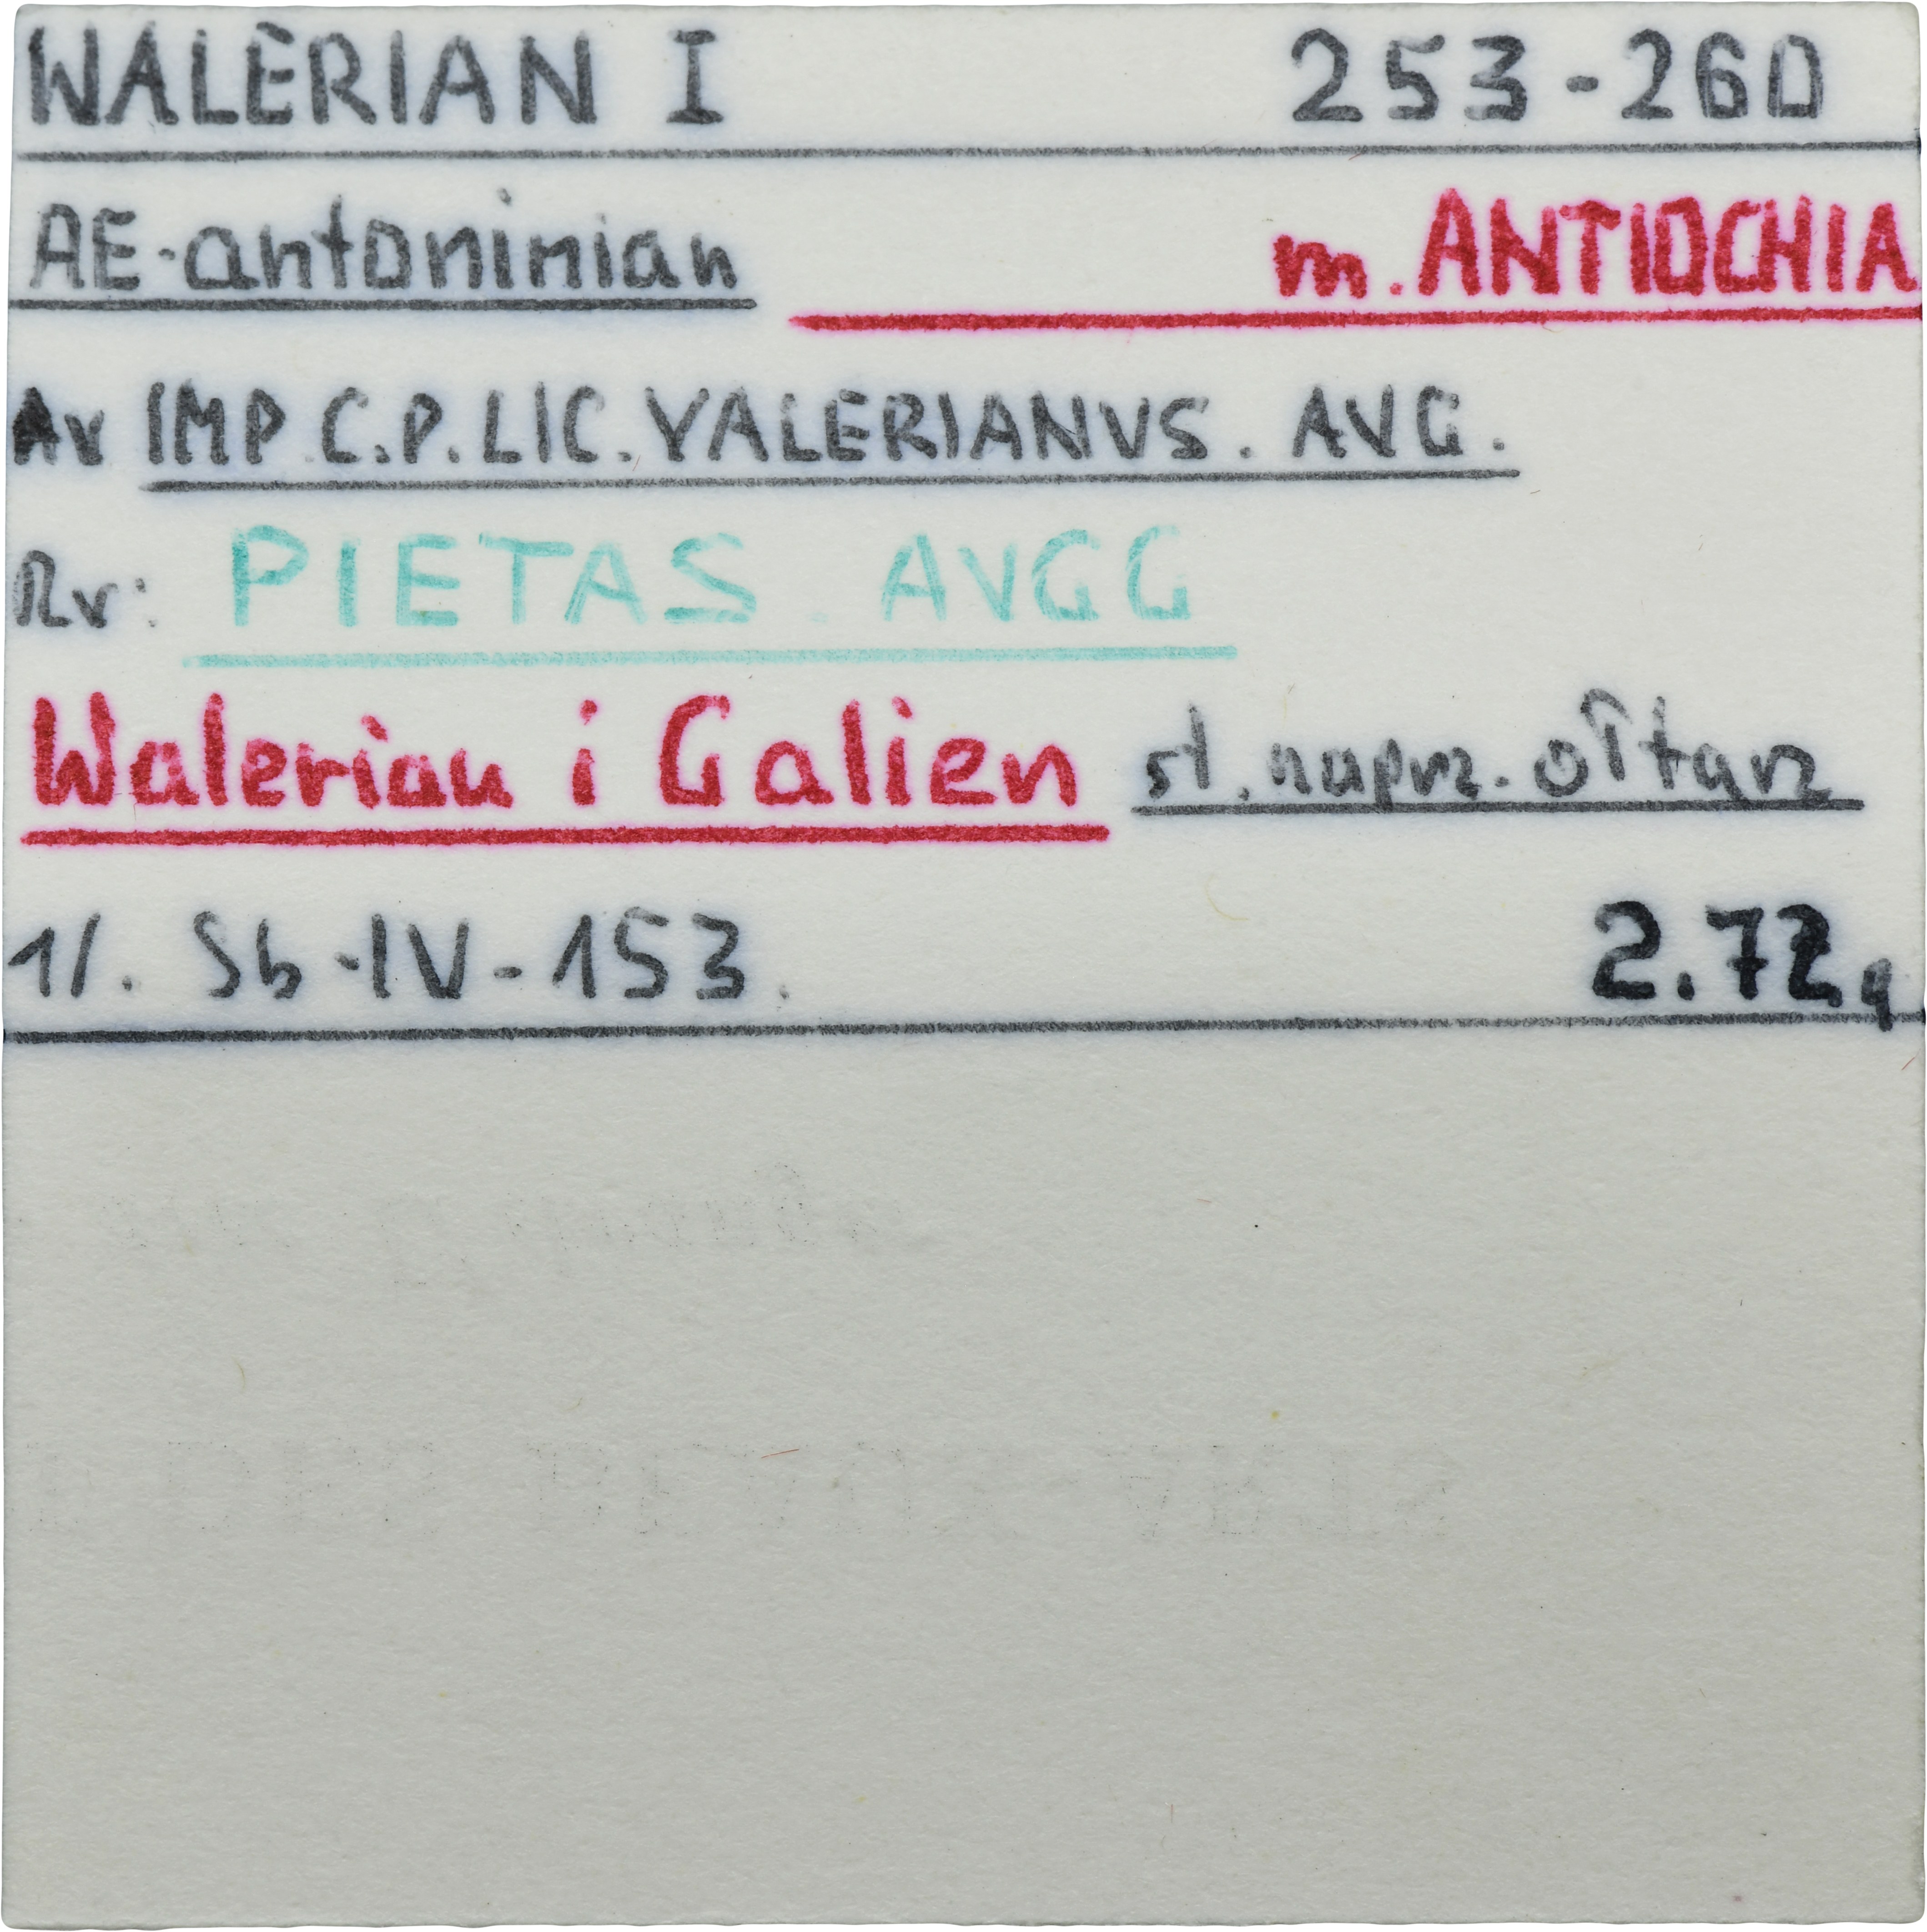 WALERIAN I 253-260
AE-antoninian m. ANTIOCHIA
Av IMP. C.P. LIC. VALERIANVS. AVG.
Rv: PIETAS. AVGG
Walerian i Galien st. naprz. ołtarz
1/. Sb-IV-153. 2.72g